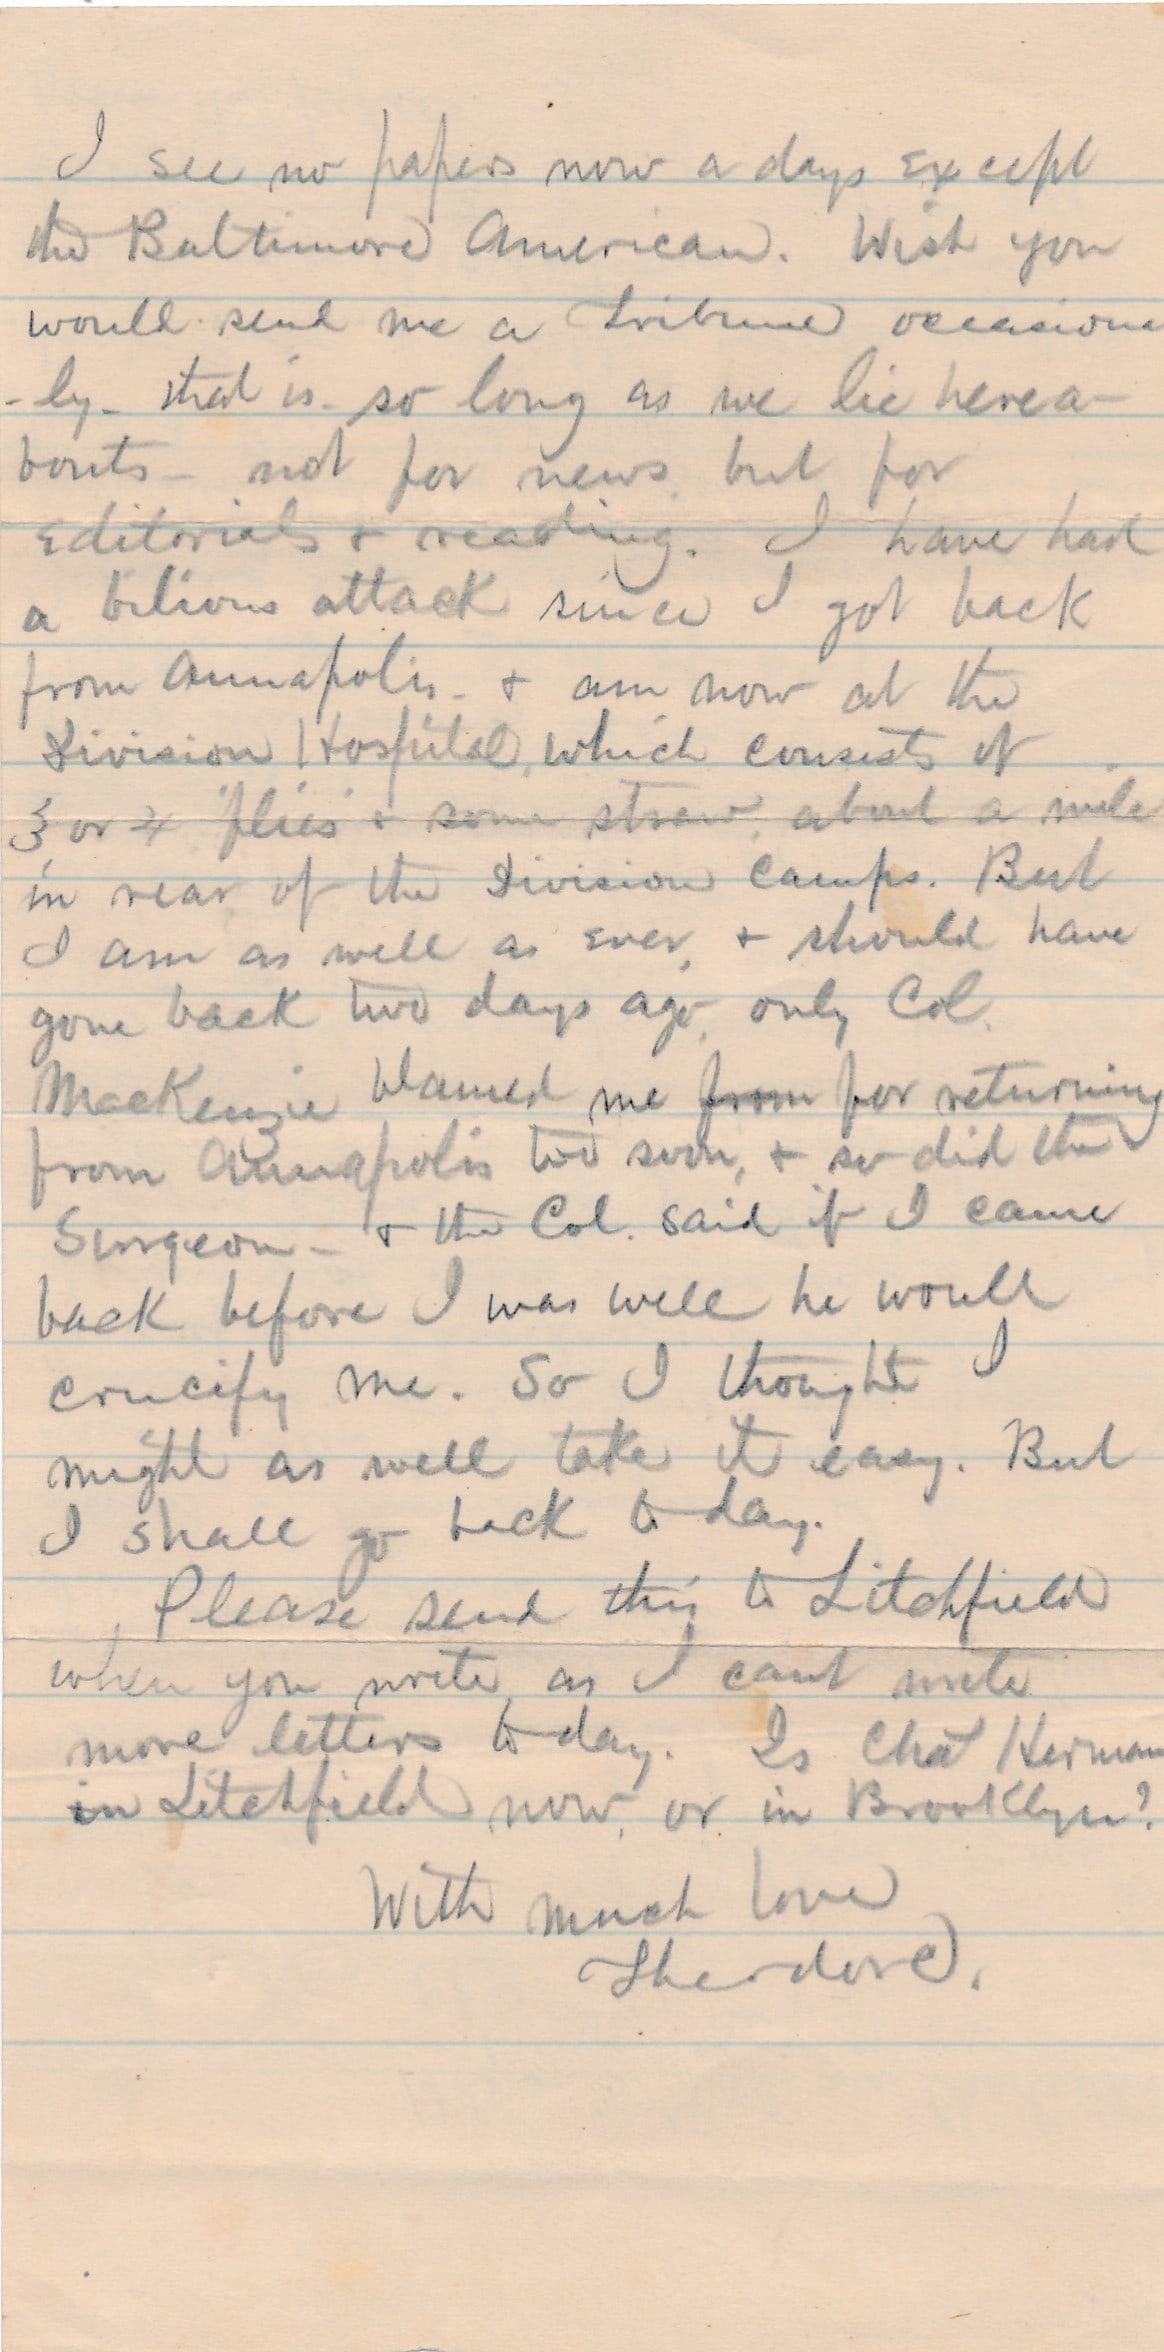 I see no papers now a days except
the Baltimore American. Wish you
would send me a Tribune occasional
-ly - that is - so long as we lie herea-
bouts - not for news, but for
Editorials & reading. I have had
a bilious attack since I got back
from Annapolis - & am now at the
Division Hospital, which consists of
3 or 4 'flies' & some straw, about a mile
in rear of the Division Camps. But
I am as well as ever, & should have
gone back two days ago, only Col.
MacKenzie blamed me from for returning
from Annapolis too soon, & so did the
Surgeon - & the Col. said if I came
back before I was well he would
crucify me. So I thought I
might as well take it easy. But
I shall go back to day.
Please send this to Litchfield
when you write, as I cant write
more letters to day. Is Cha Herman
in Litchfield now, or in Brooklyn?
With much love
Theodore.